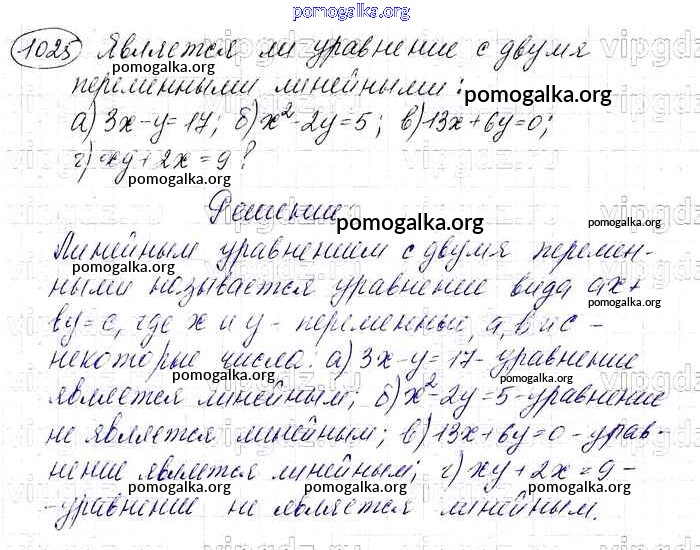 pomogalka.org
1025 Является ли уравнение с двумя
pomogalka.org
переменными линейными:
pomogalka.org
а) 3x-y=17; б) x²-2y=5; в) 13x+6y=0;
г) xy+2x=9?
pomogalka.org
Решение
pomogalka.org
pomogalka.org
Линейным уравнением с двумя перемен-
pomogalka.org
ными называется уравнение вида ax+
pomogalka.org
by=c, где x и y - переменные, a, b и c -
некоторые числа: а) 3x-y=17- уравнение
pomogalka.org
pomogalka.org
является линейным; б) x²-2y=5-уравнение
pomogalka.org
не является линейным; в) 13x+6y=0-урав-
pomogalka.org
нение является линейным; г) xy+2x=9-
pomogalka.org
pomogalka.org
-уравнение не является линейным.